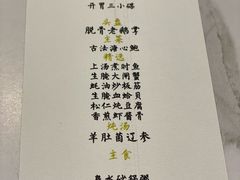 开胃三小碟
头盘
脱骨老鹅掌
主菜
古法溏心鲍
精选
上汤煮时鱼
生腌大闸蟹
蚝油炒板筋
生腌血蛤贝
松仁炖豆腐
香煎虾酱骨
炖汤
羊肚菌辽参
主食